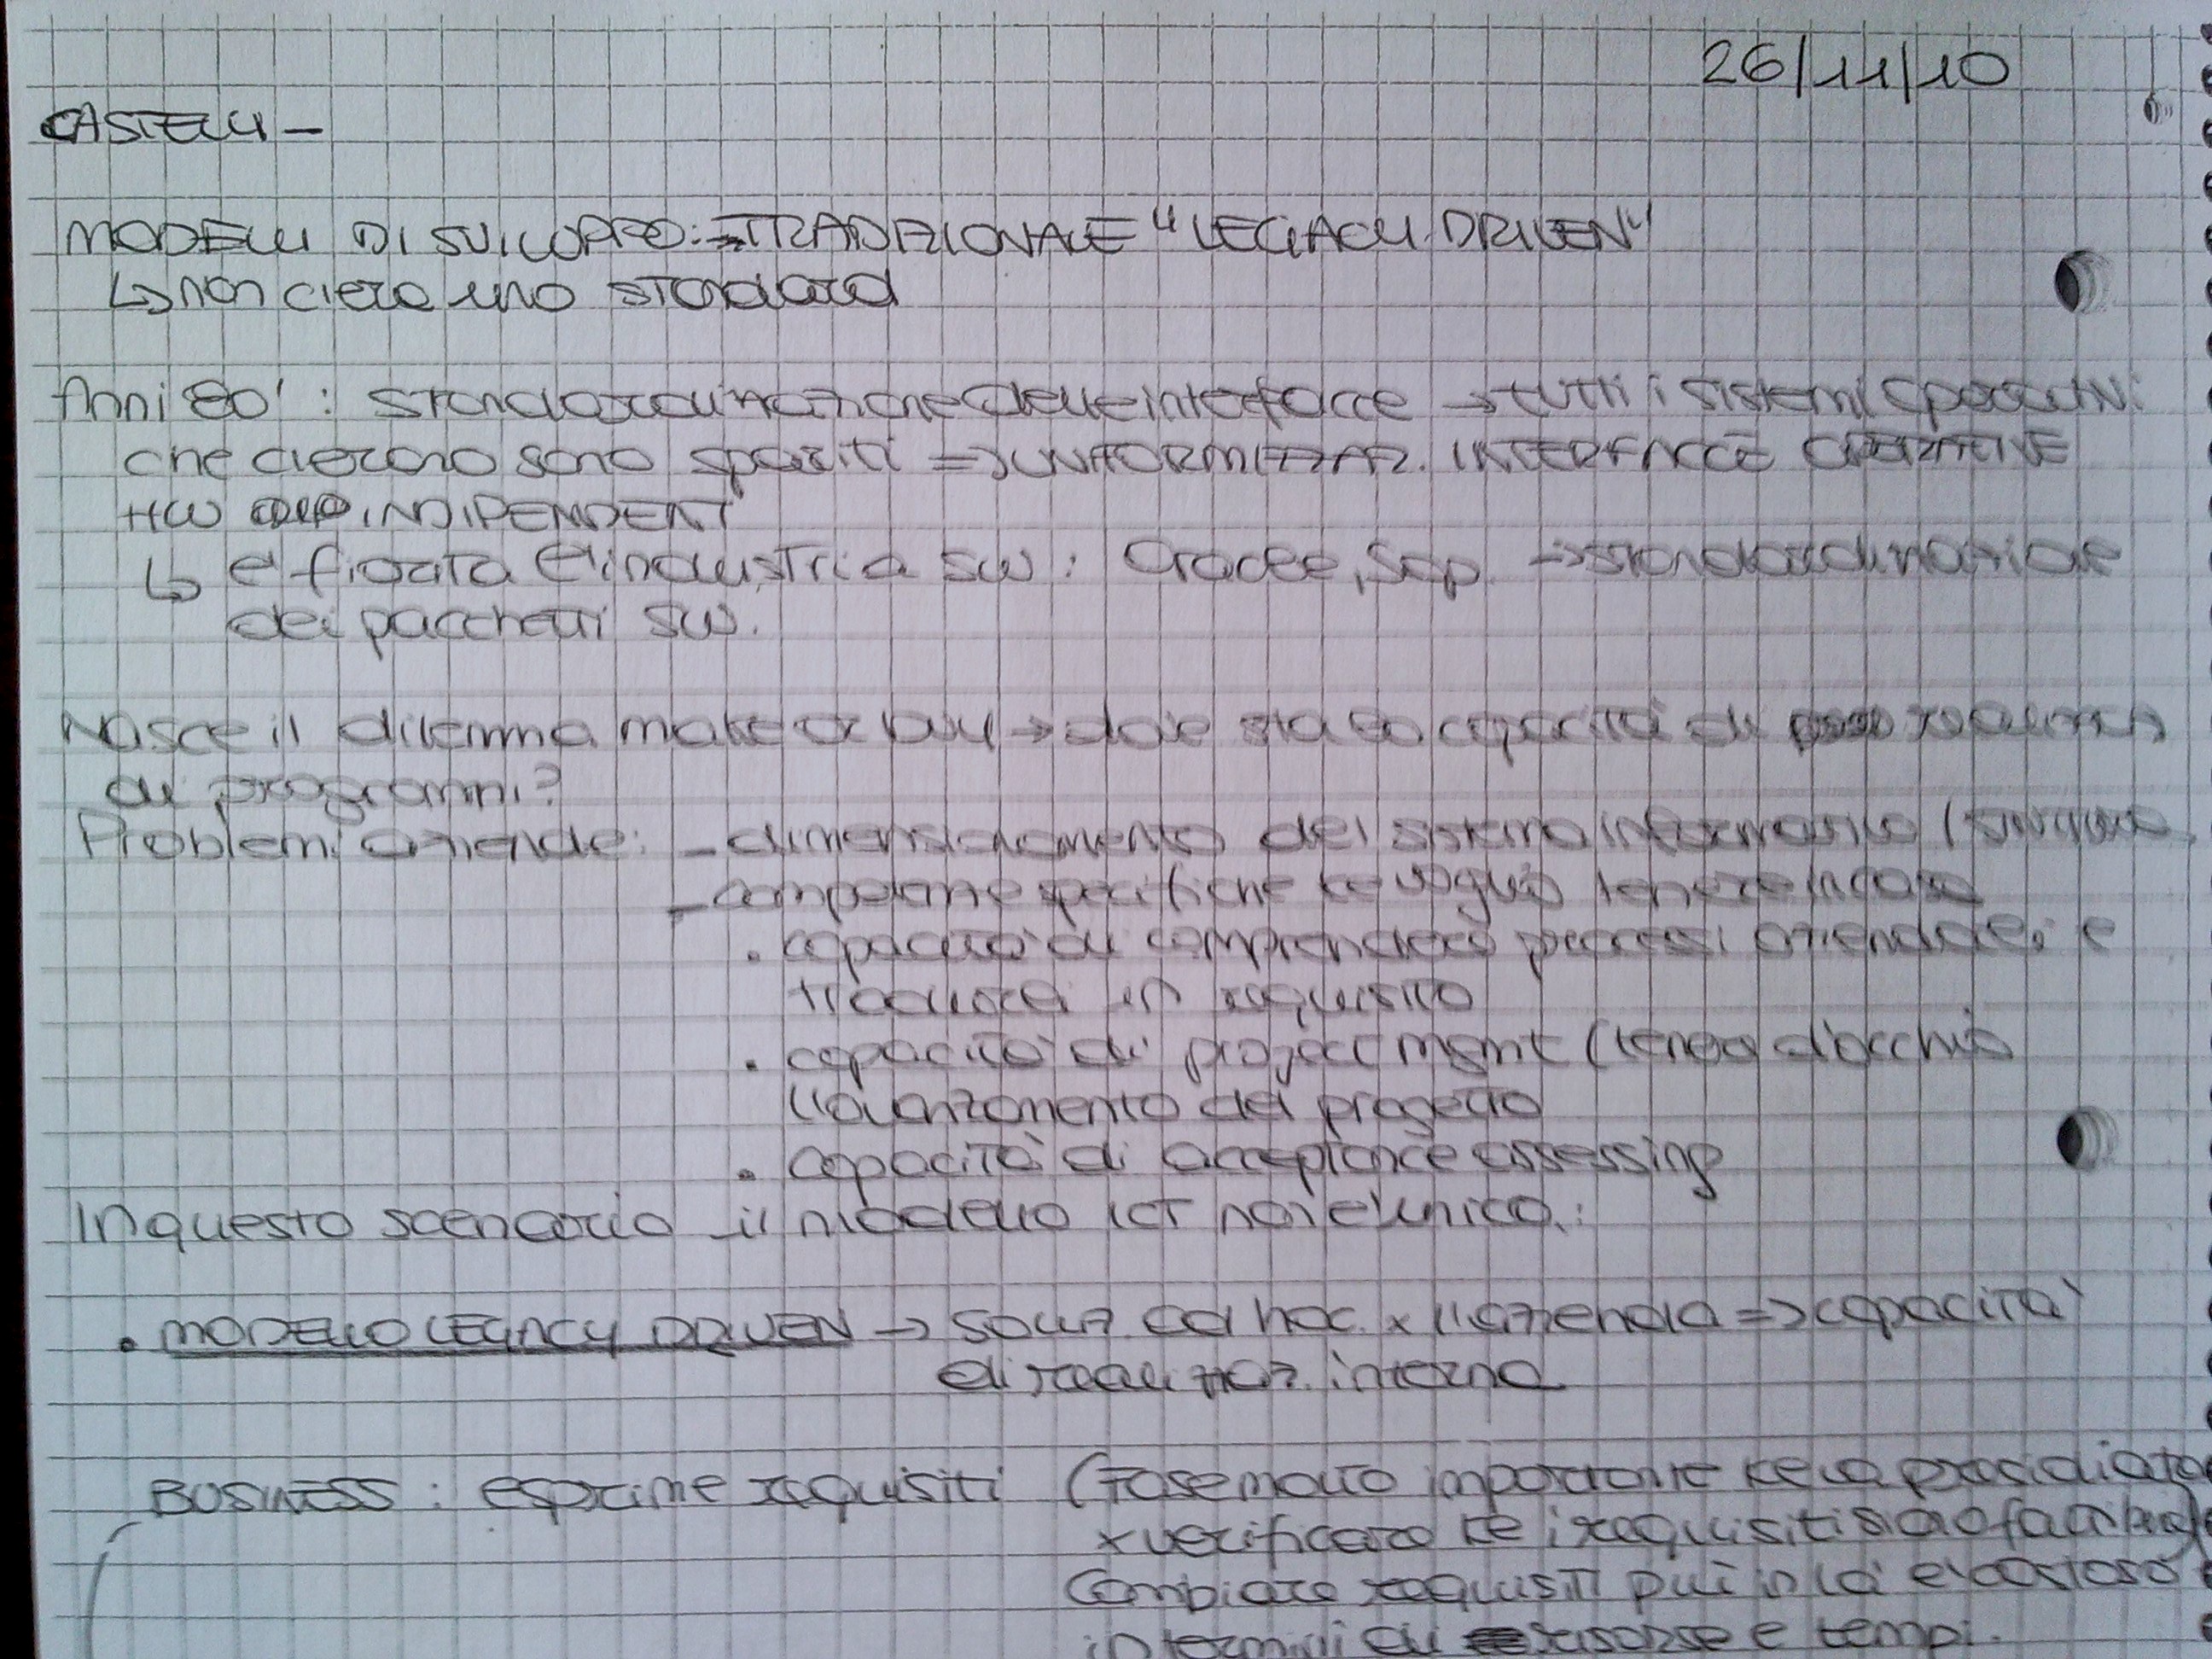 26/11/10
CASTELLI -
MODELLI DI SVILUPPO: → TRADIZIONALE "LEGACY DRIVEN"
↳ non c'era uno standard
Anni 80' : standardizzazione delle interfacce → tutti i sistemi operativi
che c'erano sono spariti => UNIFORMIZZAZ. INTERFACCE OPERATIVE
HW INDIPENDENT
↳ e' fiorita l'industria sw : Oracle, Sap → standardizzazione
dei pacchetti sw.
Nasce il dilemma make or buy → dov'è sta la capacità di realizzaz
di programmi?
Problemi aziende: - dimensionamento del sistema informativo (struttura
- competenze specifiche ke voglio tenere in casa
• capacità di comprendere processi aziendali e
tradurre in requisito
• capacità di project mgmt (tengo d'occhio
l'avanzamento del progetto
• capacità di acceptance assessing
In questo scenario il modello ICT non e' unico :
• MODELLO LEGACY DRIVEN → soluz. ad hoc x l'azienda => capacità
di realizzaz. interna
BUSINESS : esprime requisiti (Fase molto importante ke va presidiata
x verificare ke i requisiti siano fattibili)
Cambiare requisiti più in là e' costoso
in termini di risorse e tempi.